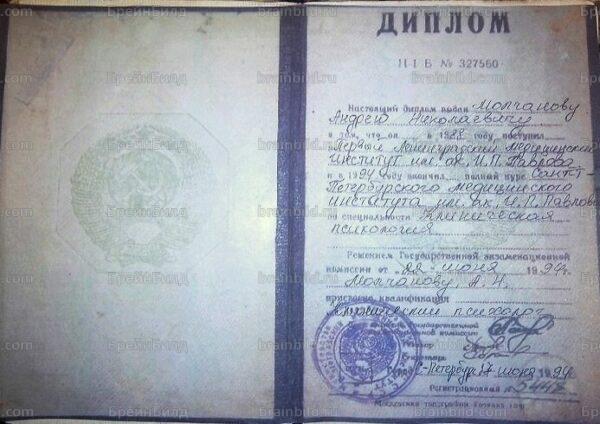 ДИПЛОМ
ЦІВ № 327560
Настоящий диплом выдан Молчанову
Андрею Николаевичу
в том, что он в 1988 году поступил
Первый Ленинградский медицинский
институт им. ак. И.П. Павлова
и в 1994 году окончил полный курс Санкт-
Петербургского медицинского
института им. ак. И.П. Павлова
по специальности Клиническая
психология
Решением Государственной экзаменационной
комиссии от 22 июня 1994г.
Молчанову, А. Н.
присвоена квалификация
клинический психолог
Государственной
комиссии
Ректор
Секретарь
Город С-Петербург 27 июня 1994
Регистрационный №
Московская типография Гознака
БрейнБилд
brainbild.ru
.com